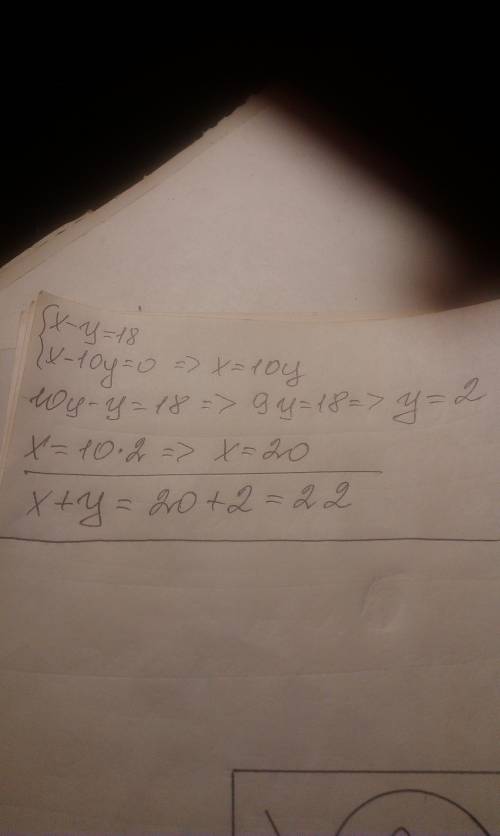 {x-y=18
{x-10y=0 => x=10y
10y-y=18 => 9y=18 => y=2
x=10·2 => x=20
x+y=20+2=22